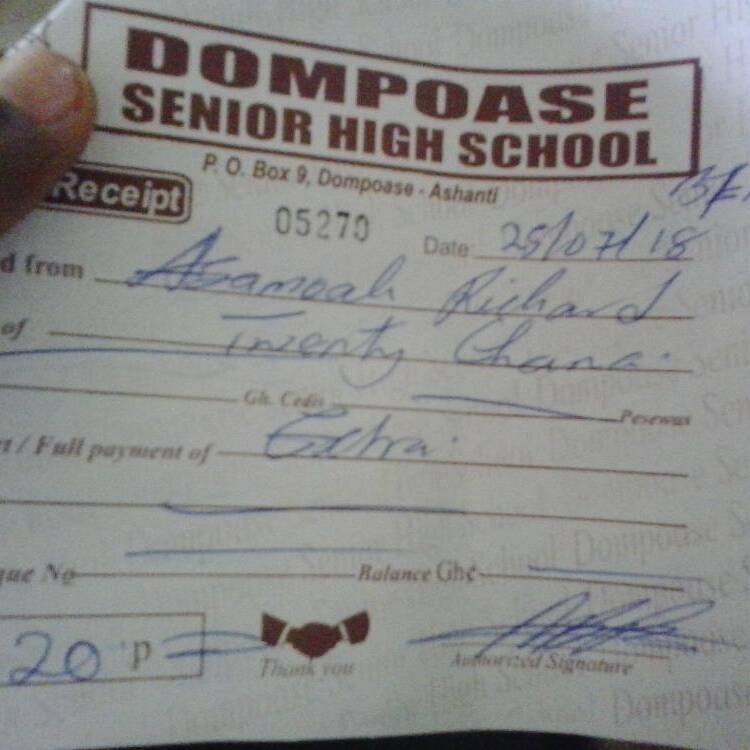 DOMPOASE
SENIOR HIGH SCHOOL
P. O. Box 9, Dompoase - Ashanti
Receipt
05270
Date: 25/07/18
d from Asamoah Richard
of Twenty Ghana.
Gh. Cedis Pesewas
t / Full payment of Extra.
que No Balance Gh¢
20 p
Thank you
Authorized Signature